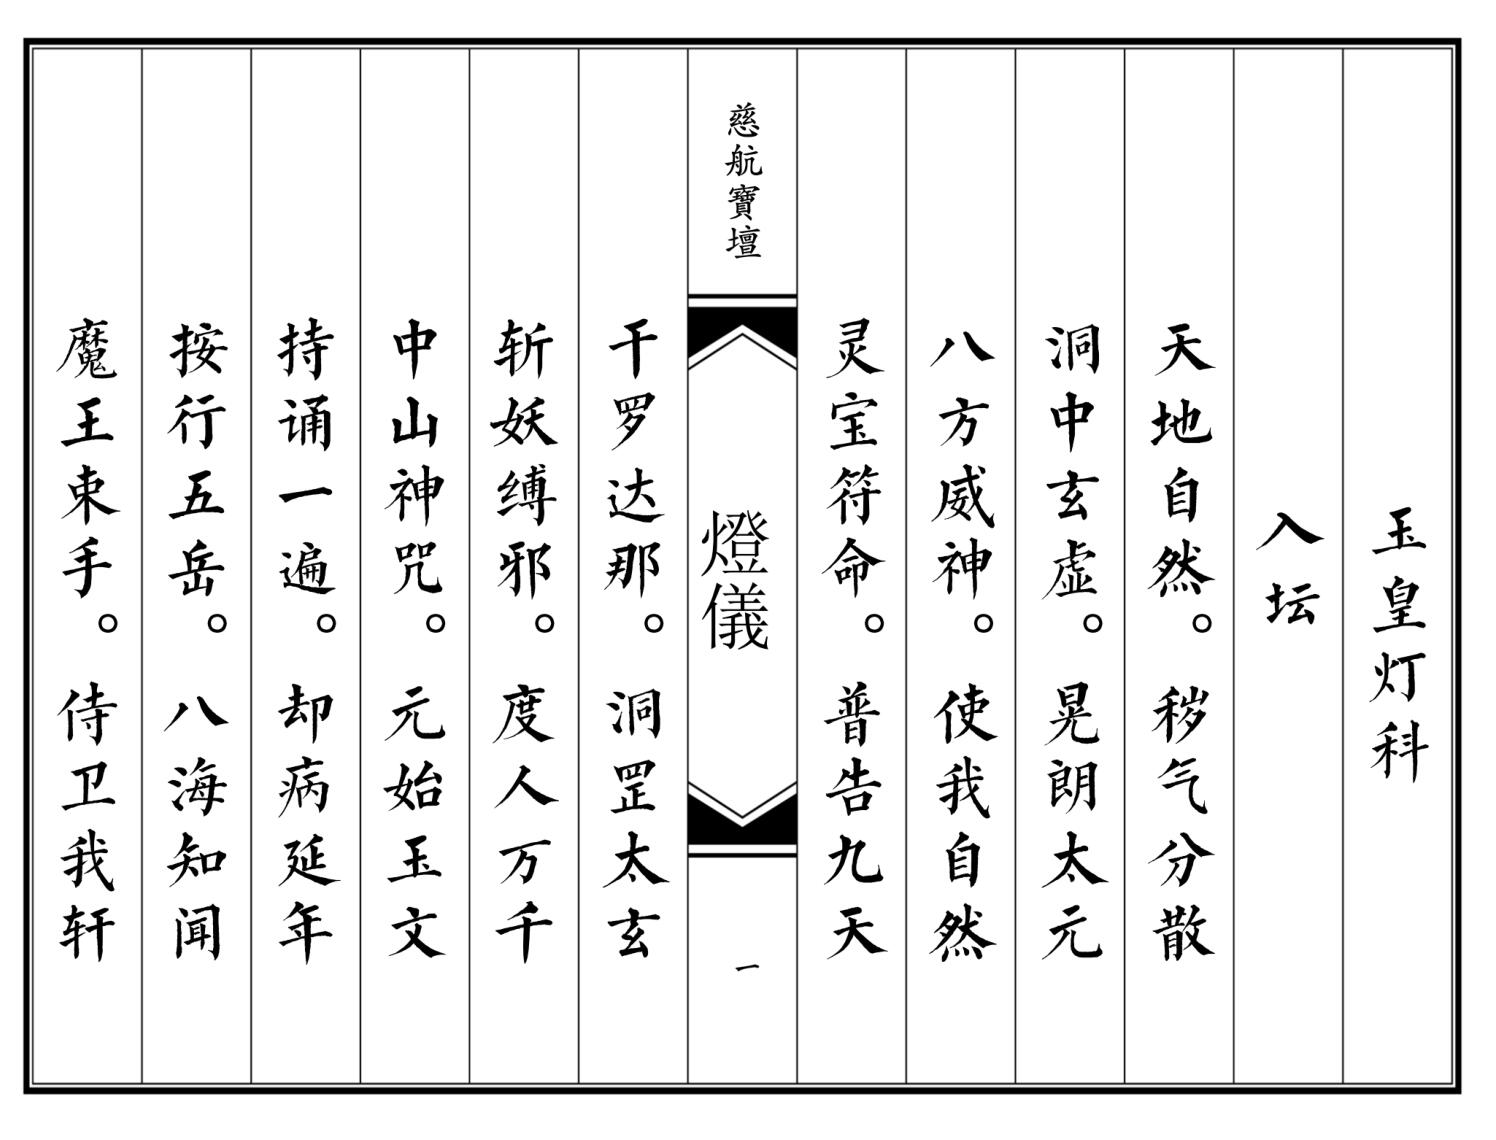 玉皇灯科
入坛
天地自然。秽气分散
洞中玄虚。晃朗太元
八方威神。使我自然
灵宝符命。普告九天
慈航寶壇
燈儀
一
干罗达那。洞罡太玄
斩妖缚邪。度人万千
中山神咒。元始玉文
持诵一遍。却病延年
按行五岳。八海知闻
魔王束手。侍卫我轩